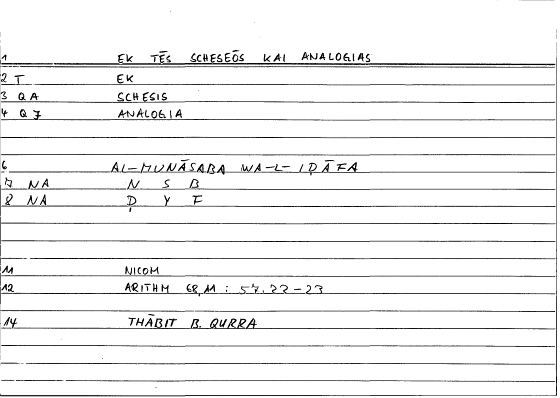 1 EK TĒS SCHESEŌS KAI ANALOGIAS
2 T EK
3 QA SCHESIS
4 QJ ANALOGIA
6 AI-MUNĀSABA WA-L-IḌĀFA
7 NA N S B
8 NA Ḍ Y F
11 NICOM
12 ARITHM 68,11 : 57.22-23
14 THĀBIT B. QURRA